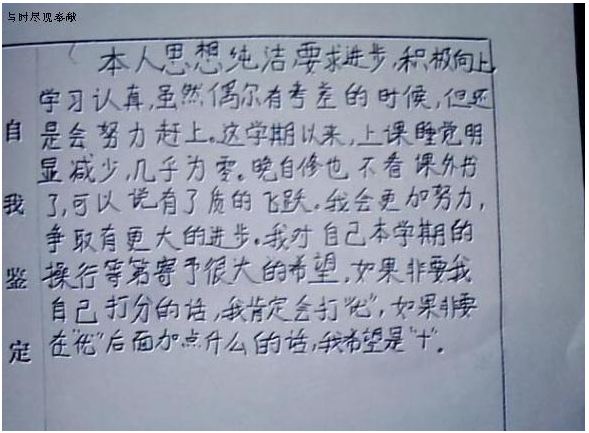 与时尽现奉献
本人思想纯洁要求进步,积极向上
学习认真,虽然偶尔有考差的时候,但还
是会努力赶上。这学期以来,上课睡觉明
显减少,几乎为零。晚自修也不看课外书
了,可以说有了质的飞跃。我会更加努力,
争取有更大的进步。我对自己本学期的
操行等第寄予很大的希望,如果非要我
自己打分的话,我肯定会打“优”,如果非要
在“优”后面加点什么的话,我希望是“十”。
自
我
鉴
定